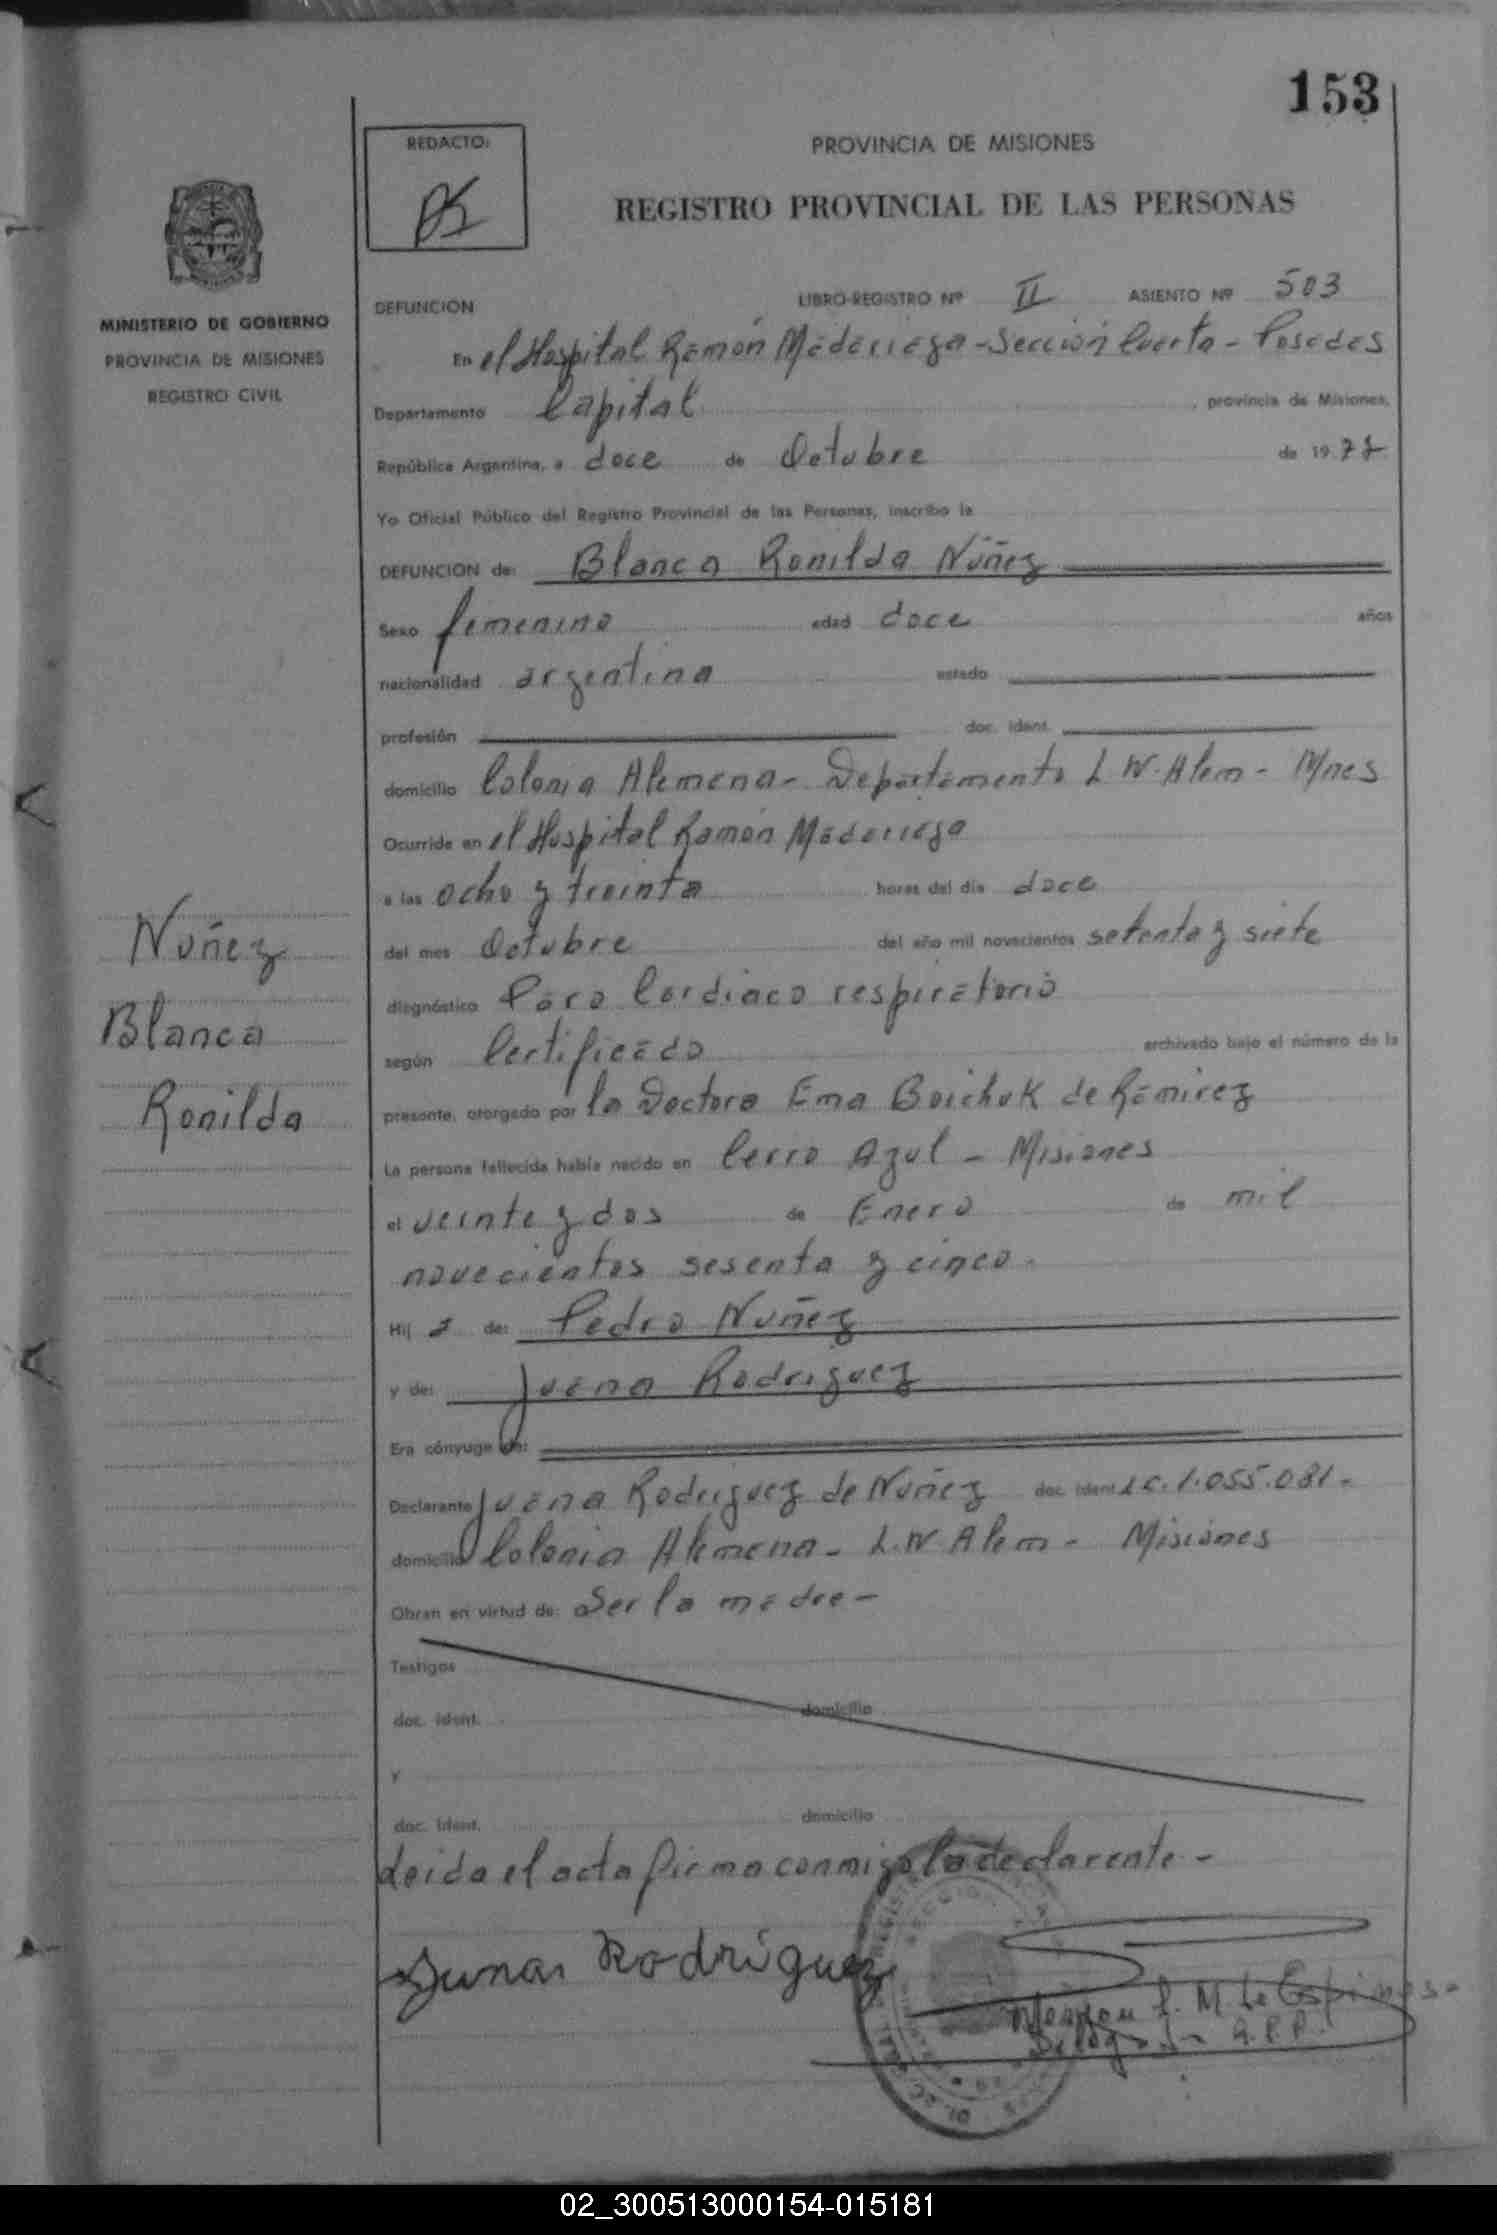 153
REDACTO:
PROVINCIA DE MISIONES
REGISTRO PROVINCIAL DE LAS PERSONAS
MINISTERIO DE GOBIERNO
PROVINCIA DE MISIONES
REGISTRO CIVIL
DEFUNCION LIBRO-REGISTRO Nº II ASIENTO Nº 503
En el Hospital Ramón Madariaga - Sección Puerta - Posadas
Departamento Capital, provincia de Misiones,
República Argentina, a doce de Octubre de 1977
Yo Oficial Público del Registro Provincial de las Personas, inscribo la
DEFUNCION de: Blanca Ronilda Núñez
Sexo femenino edad doce años
nacionalidad argentina estado
profesión doc. ident.
domicilio Colonia Alemana - Departamento L. N. Alem - Mnes
Ocurrida en el Hospital Ramón Madariaga
a las ocho y treinta horas del día doce
del mes Octubre del año mil novecientos setenta y siete
diagnóstico Paro Cardiaco respiratorio
según Certificado archivado bajo el número de la
presente, otorgado por la Doctora Ema Boichuk de Ramirez
La persona fallecida había nacido en Cerro Azul - Misiones
el veinte y dos de Enero de mil
novecientos sesenta y cinco.
Hij a de: Pedro Nuñez
y de: Juana Rodriguez
Era cónyuge de:
Declarante Juana Rodriguez de Nuñez doc. ident. L.C. 1.055.081.-
domicilio Colonia Alemana - L.N. Alem - Misiones
Obran en virtud de: Ser la madre -
Testigos
doc. ident. domicilio
y
doc. ident. domicilio
Leida el acta firma conmigo la declarante -
Juna Rodriguez
M. de Espinosa
Nuñez
Blanca
Ronilda
02_300513000154-015181